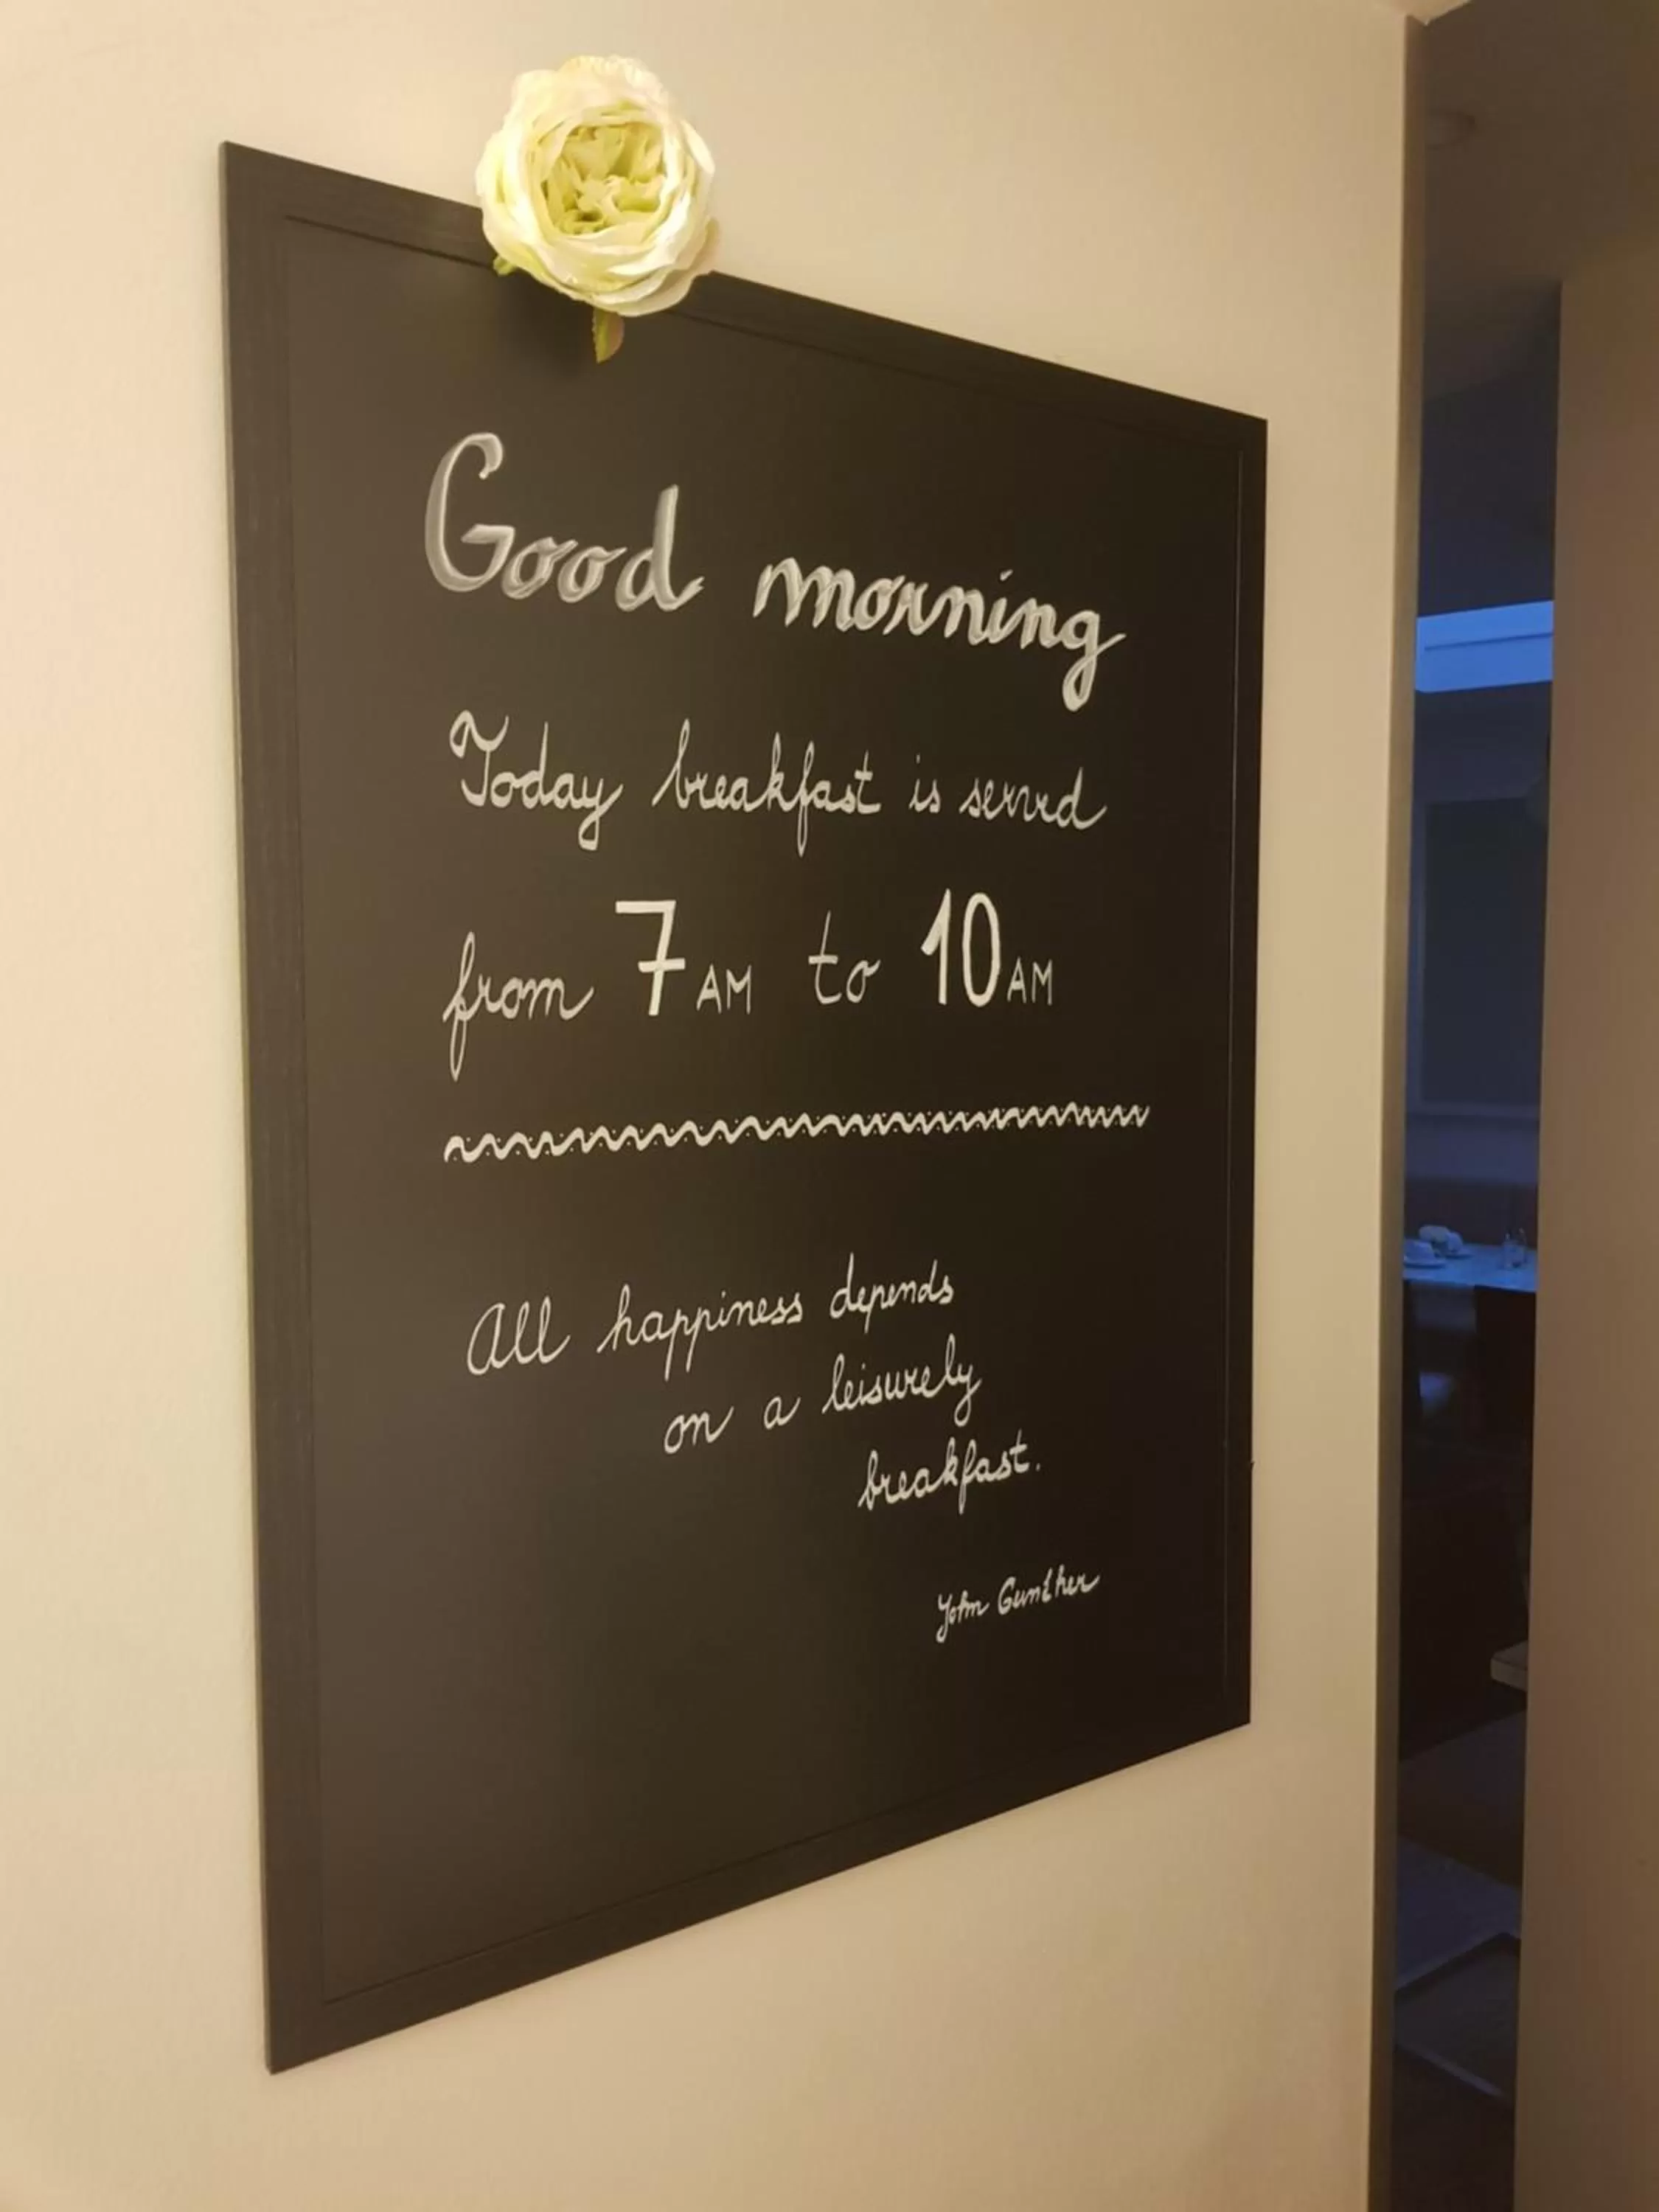 Good morning
Today breakfast is served
from 7 AM to 10 AM
All happiness depends
on a leisurely
breakfast.
John Gunther